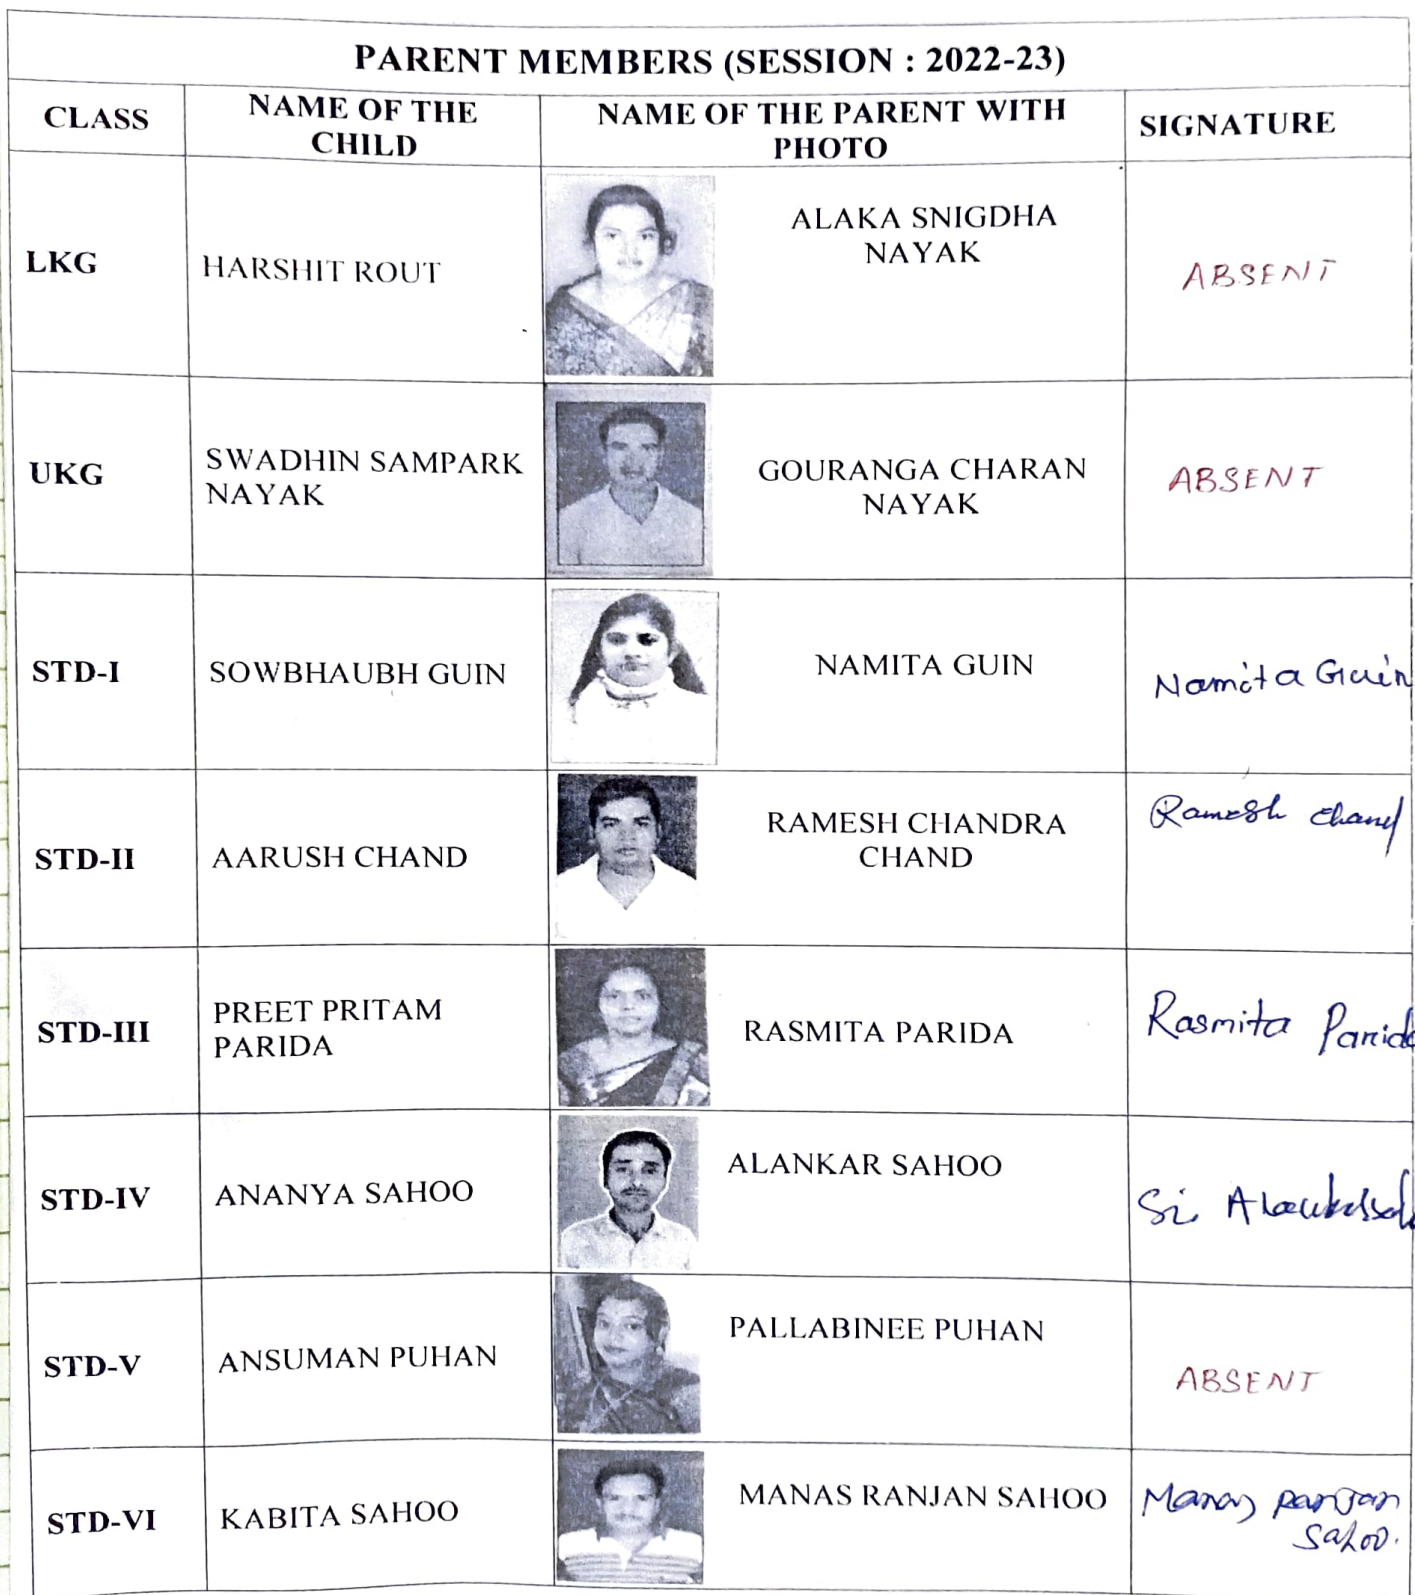 PARENT MEMBERS (SESSION : 2022-23)
CLASS
NAME OF THE
CHILD
NAME OF THE PARENT WITH
PHOTO
SIGNATURE
LKG
HARSHIT ROUT
ALAKA SNIGDHA
NAYAK
ABSENT
UKG
SWADHIN SAMPARK
NAYAK
GOURANGA CHARAN
NAYAK
ABSENT
STD-I
SOWBHAUBH GUIN
NAMITA GUIN
Namita Guin
STD-II
AARUSH CHAND
RAMESH CHANDRA
CHAND
Ramesh Chand
STD-III
PREET PRITAM
PARIDA
RASMITA PARIDA
Rasmita Parida
STD-IV
ANANYA SAHOO
ALANKAR SAHOO
STD-V
ANSUMAN PUHAN
PALLABINEE PUHAN
ABSENT
STD-VI
KABITA SAHOO
MANAS RANJAN SAHOO
Manas Ranjan
Sahoo.